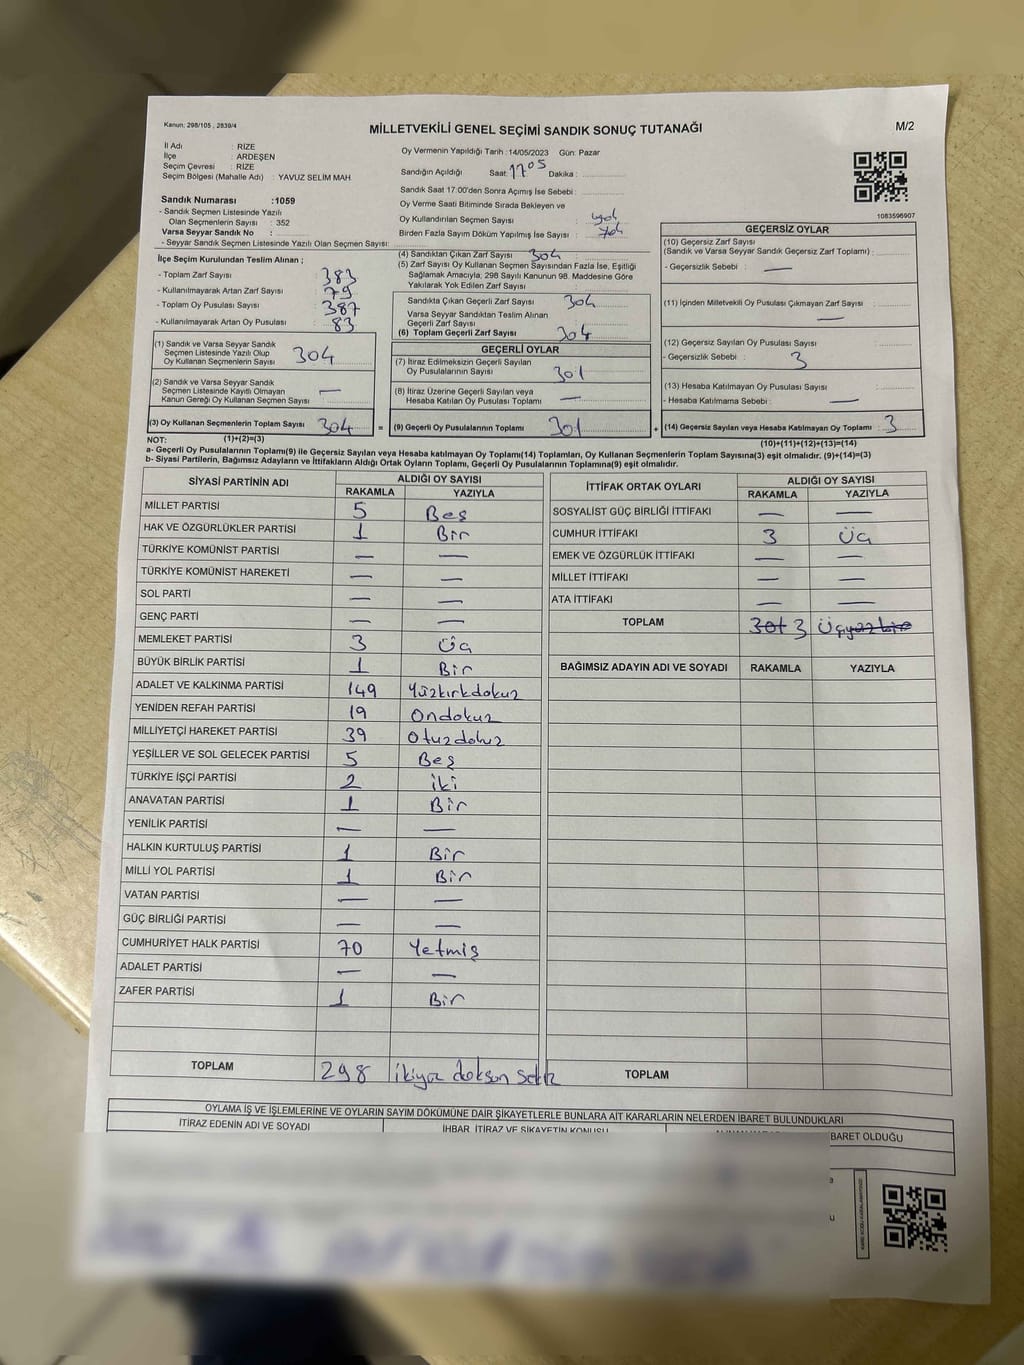 Kanun: 298/105 , 2839/4
MİLLETVEKİLİ GENEL SEÇİMİ SANDIK SONUÇ TUTANAĞI
M/2
İl Adı : RİZE
İlçe : ARDEŞEN
Seçim Çevresi : RİZE
Seçim Bölgesi (Mahalle Adı) : YAVUZ SELİM MAH
Sandık Numarası :1059
- Sandık Seçmen Listesinde Yazılı
Olan Seçmenlerin Sayısı : 352
Varsa Seyyar Sandık No :
- Seyyar Sandık Seçmen Listesinde Yazılı Olan Seçmen Sayısı:
Oy Vermenin Yapıldığı Tarih : 14/05/2023 Gün: Pazar
Sandığın Açıldığı Saat: 17 05 Dakika :
Sandık Saat 17:00'den Sonra Açımış İse Sebebi :
Oy Verme Saati Bitiminde Sırada Bekleyen ve
Oy Kullandırılan Seçmen Sayısı : yok
Birden Fazla Sayım Döküm Yapılmış İse Sayısı : yok
1083596907
İlçe Seçim Kurulundan Teslim Alınan ;
- Toplam Zarf Sayısı : 383
- Kullanılmayarak Artan Zarf Sayısı : 79
- Toplam Oy Pusulası Sayısı : 387
- Kullanılmayarak Artan Oy Pusulası : 83
(1) Sandık ve Varsa Seyyar Sandık
Seçmen Listesinde Yazılı Olup
Oy Kullanan Seçmenlerin Sayısı : 304
(2) Sandık ve Varsa Seyyar Sandık
Seçmen Listesinde Kayıtlı Olmayan
Kanun Gereği Oy Kullanan Seçmen Sayısı : —
(3) Oy Kullanan Seçmenlerin Toplam Sayısı : 304 =
(4) Sandıktan Çıkan Zarf Sayısı : 304
(5) Zarf Sayısı Oy Kullanan Seçmen Sayısından Fazla İse, Eşitliği
Sağlamak Amacıyla, 298 Sayılı Kanunun 98. Maddesine Göre
Yakılarak Yok Edilen Zarf Sayısı :
Sandıkta Çıkan Geçerli Zarf Sayısı : 304
Varsa Seyyar Sandıktan Teslim Alınan
Geçerli Zarf Sayısı :
(6) Toplam Geçerli Zarf Sayısı : 304
GEÇERLİ OYLAR
(7) İtiraz Edilmeksizin Geçerli Sayılan
Oy Pusulalarının Sayısı : 301
(8) İtiraz Üzerine Geçerli Sayılan veya
Hesaba Katılan Oy Pusulası Toplamı : —
(9) Geçerli Oy Pusulalarının Toplamı : 301 +
GEÇERSİZ OYLAR
(10) Geçersiz Zarf Sayısı
(Sandık ve Varsa Seyyar Sandık Geçersiz Zarf Toplamı) :
- Geçersizlik Sebebi : —
(11) İçinden Milletvekili Oy Pusulası Çıkmayan Zarf Sayısı :
—
(12) Geçersiz Sayılan Oy Pusulası Sayısı :
- Geçersizlik Sebebi : 3
(13) Hesaba Katılmayan Oy Pusulası Sayısı :
- Hesaba Katılmama Sebebi : —
(14) Geçersiz Sayılan veya Hesaba Katılmayan Oy Toplamı : 3
NOT: (1)+(2)=(3) (10)+(11)+(12)+(13)=(14)
a- Geçerli Oy Pusulalarının Toplamı(9) ile Geçersiz Sayılan veya Hesaba katılmayan Oy Toplamı(14) Toplamları, Oy Kullanan Seçmenlerin Toplam Sayısına(3) eşit olmalıdır. (9)+(14)=(3)
b- Siyasi Partilerin, Bağımsız Adayların ve İttifakların Aldığı Ortak Oyların Toplamı, Geçerli Oy Pusulalarının Toplamına(9) eşit olmalıdır.
SİYASİ PARTİNİN ADI ALDIĞI OY SAYISI
RAKAMLA YAZIYLA
MİLLET PARTİSİ 5 Beş
HAK VE ÖZGÜRLÜKLER PARTİSİ 1 Bir
TÜRKİYE KOMÜNİST PARTİSİ — —
TÜRKİYE KOMÜNİST HAREKETİ — —
SOL PARTİ — —
GENÇ PARTİ — —
MEMLEKET PARTİSİ 3 Üç
BÜYÜK BİRLİK PARTİSİ 1 Bir
ADALET VE KALKINMA PARTİSİ 149 Yüzkırkdokuz
YENİDEN REFAH PARTİSİ 19 Ondokuz
MİLLİYETÇİ HAREKET PARTİSİ 39 Otuzdokuz
YEŞİLLER VE SOL GELECEK PARTİSİ 5 Beş
TÜRKİYE İŞÇİ PARTİSİ 2 iki
ANAVATAN PARTİSİ 1 Bir
YENİLİK PARTİSİ — —
HALKIN KURTULUŞ PARTİSİ 1 Bir
MİLLİ YOL PARTİSİ 1 Bir
VATAN PARTİSİ — —
GÜÇ BİRLİĞİ PARTİSİ — —
CUMHURİYET HALK PARTİSİ 70 Yetmiş
ADALET PARTİSİ — —
ZAFER PARTİSİ 1 Bir
TOPLAM 298 ikiyüz doksan sekiz
İTTİFAK ORTAK OYLARI ALDIĞI OY SAYISI
RAKAMLA YAZIYLA
SOSYALİST GÜÇ BİRLİĞİ İTTİFAKI — —
CUMHUR İTTİFAKI 3 Üç
EMEK VE ÖZGÜRLÜK İTTİFAKI — —
MİLLET İTTİFAKI — —
ATA İTTİFAKI — —
TOPLAM 301 3 Üçyüzbir
BAĞIMSIZ ADAYIN ADI VE SOYADI RAKAMLA YAZIYLA
TOPLAM
OYLAMA İŞ VE İŞLEMLERİNE VE OYLARIN SAYIM DÖKÜMÜNE DAİR ŞİKAYETLERLE BUNLARA AİT KARARLARIN NELERDEN İBARET BULUNDUKLARI
İTİRAZ EDENİN ADI VE SOYADI İHBAR, İTİRAZ VE ŞİKAYETİN KONUSU BARET OLDUĞU